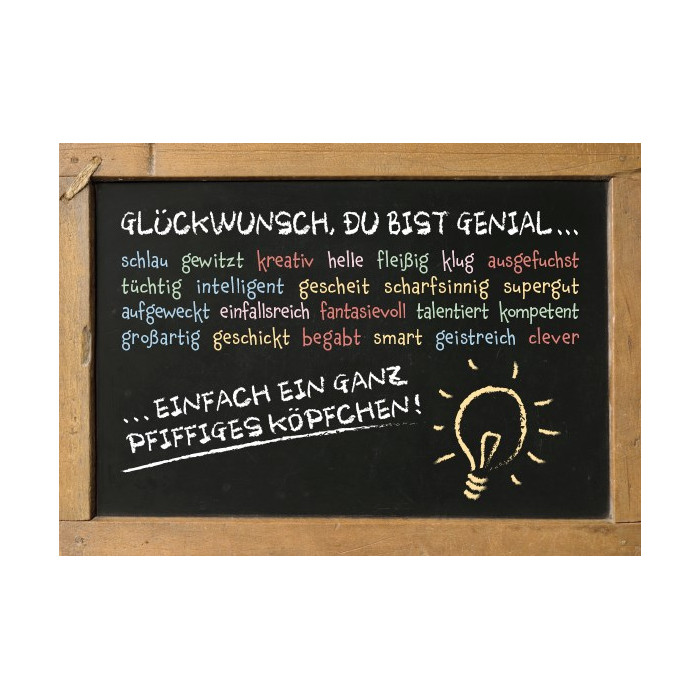 GLÜCKWUNSCH, DU BIST GENIAL...
schlau gewitzt kreativ helle fleißig klug ausgefuchst
tüchtig intelligent gescheit scharfsinnig supergut
aufgeweckt einfallsreich fantasievoll talentiert kompetent
großartig geschickt begabt smart geistreich clever
...EINFACH EIN GANZ
PFIFFIGES KÖPFCHEN!